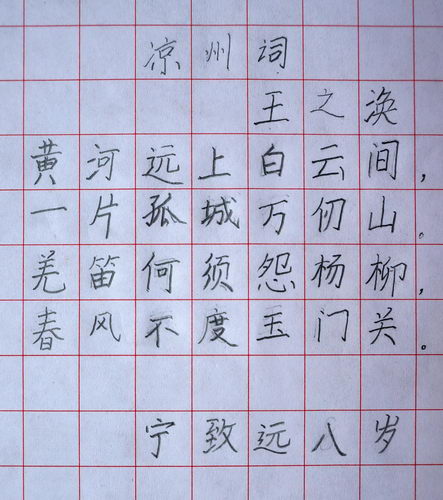 凉州词
王之涣
黄河远上白云间,
一片孤城万仞山。
羌笛何须怨杨柳,
春风不度玉门关。
宁致远八岁